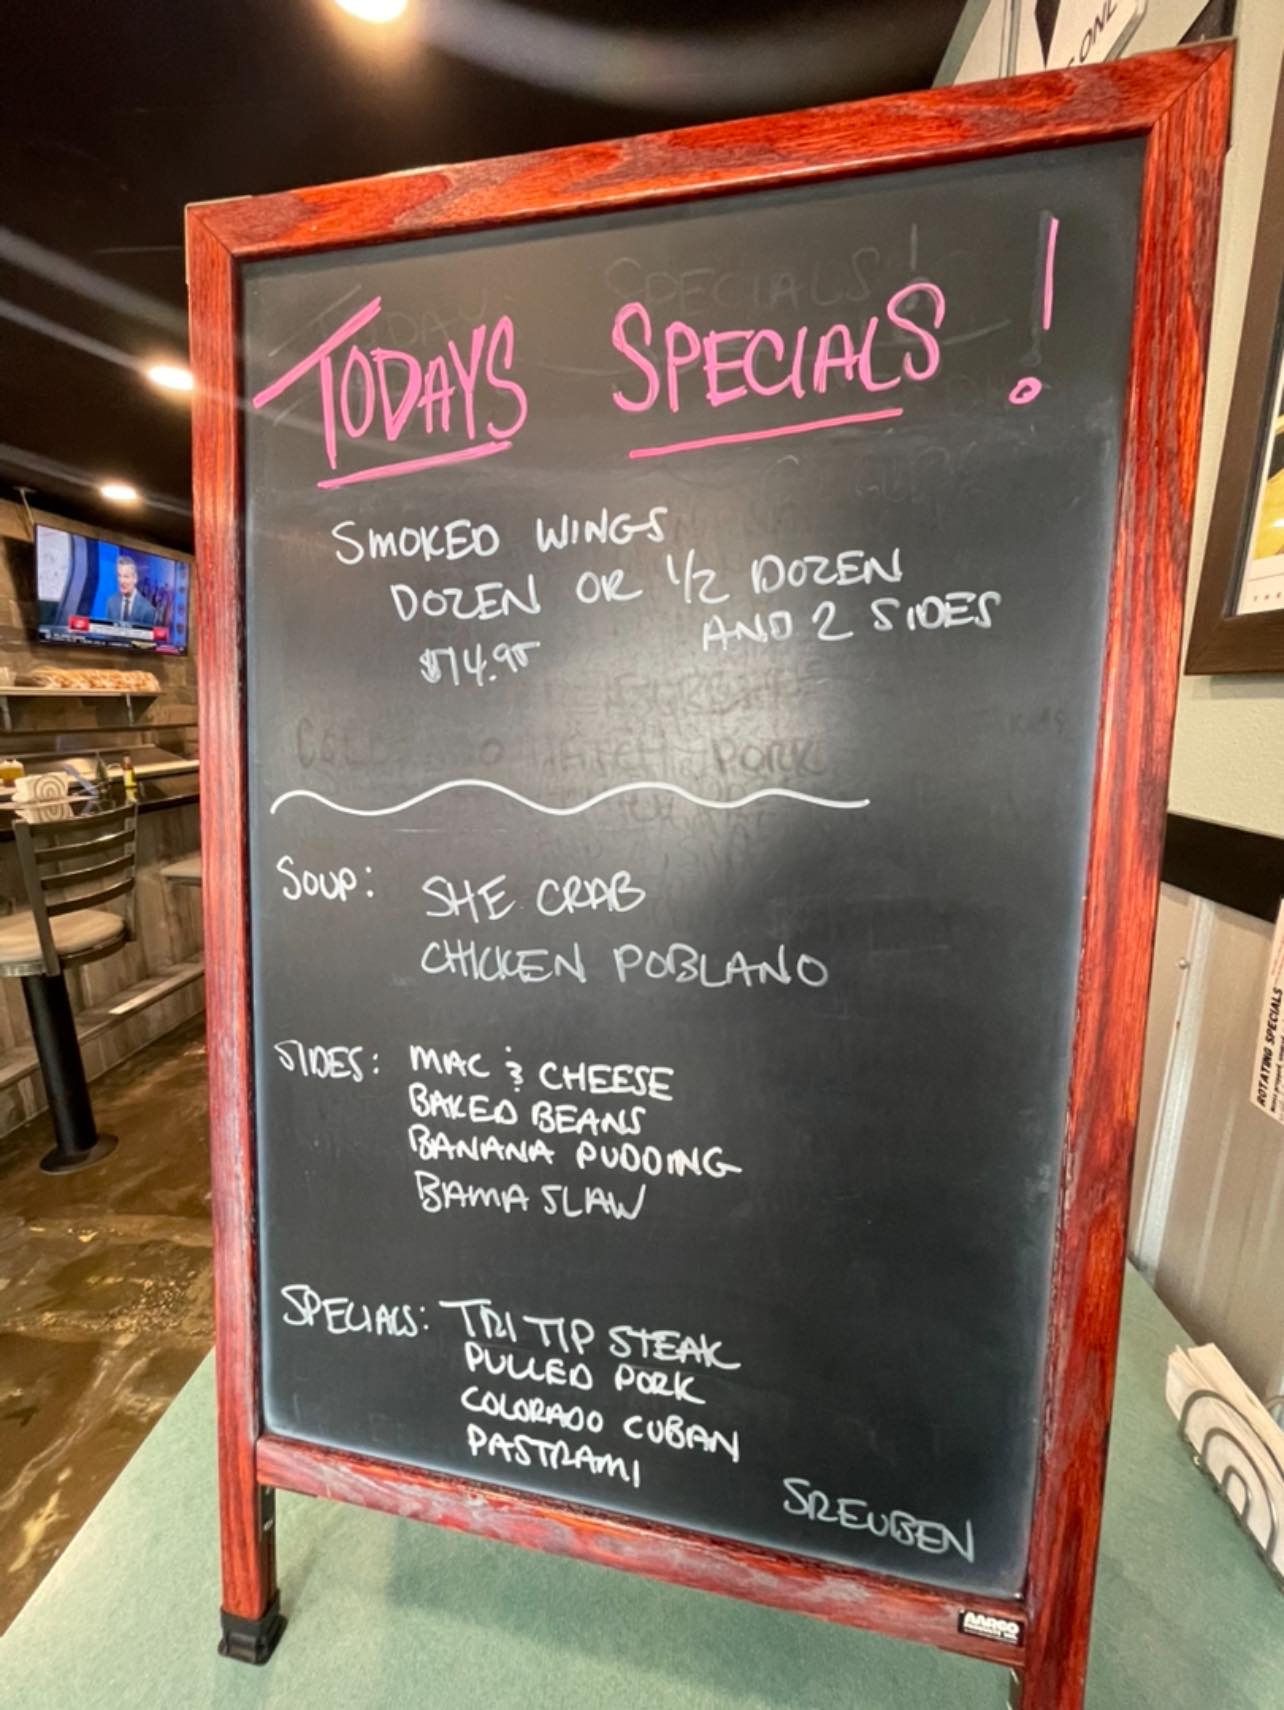 TODAYS SPECIALS!
SMOKED WINGS
DOZEN OR 1/2 DOZEN
AND 2 SIDES
$14.95
SOUP: SHE CRAB
CHICKEN POBLANO
SIDES: MAC & CHEESE
BAKED BEANS
BANANA PUDDING
BAMA SLAW
SPECIALS: TRI TIP STEAK
PULLED PORK
COLORADO CUBAN
PASTRAMI
SREUBEN
AARCO
ROTATING SPECIALS